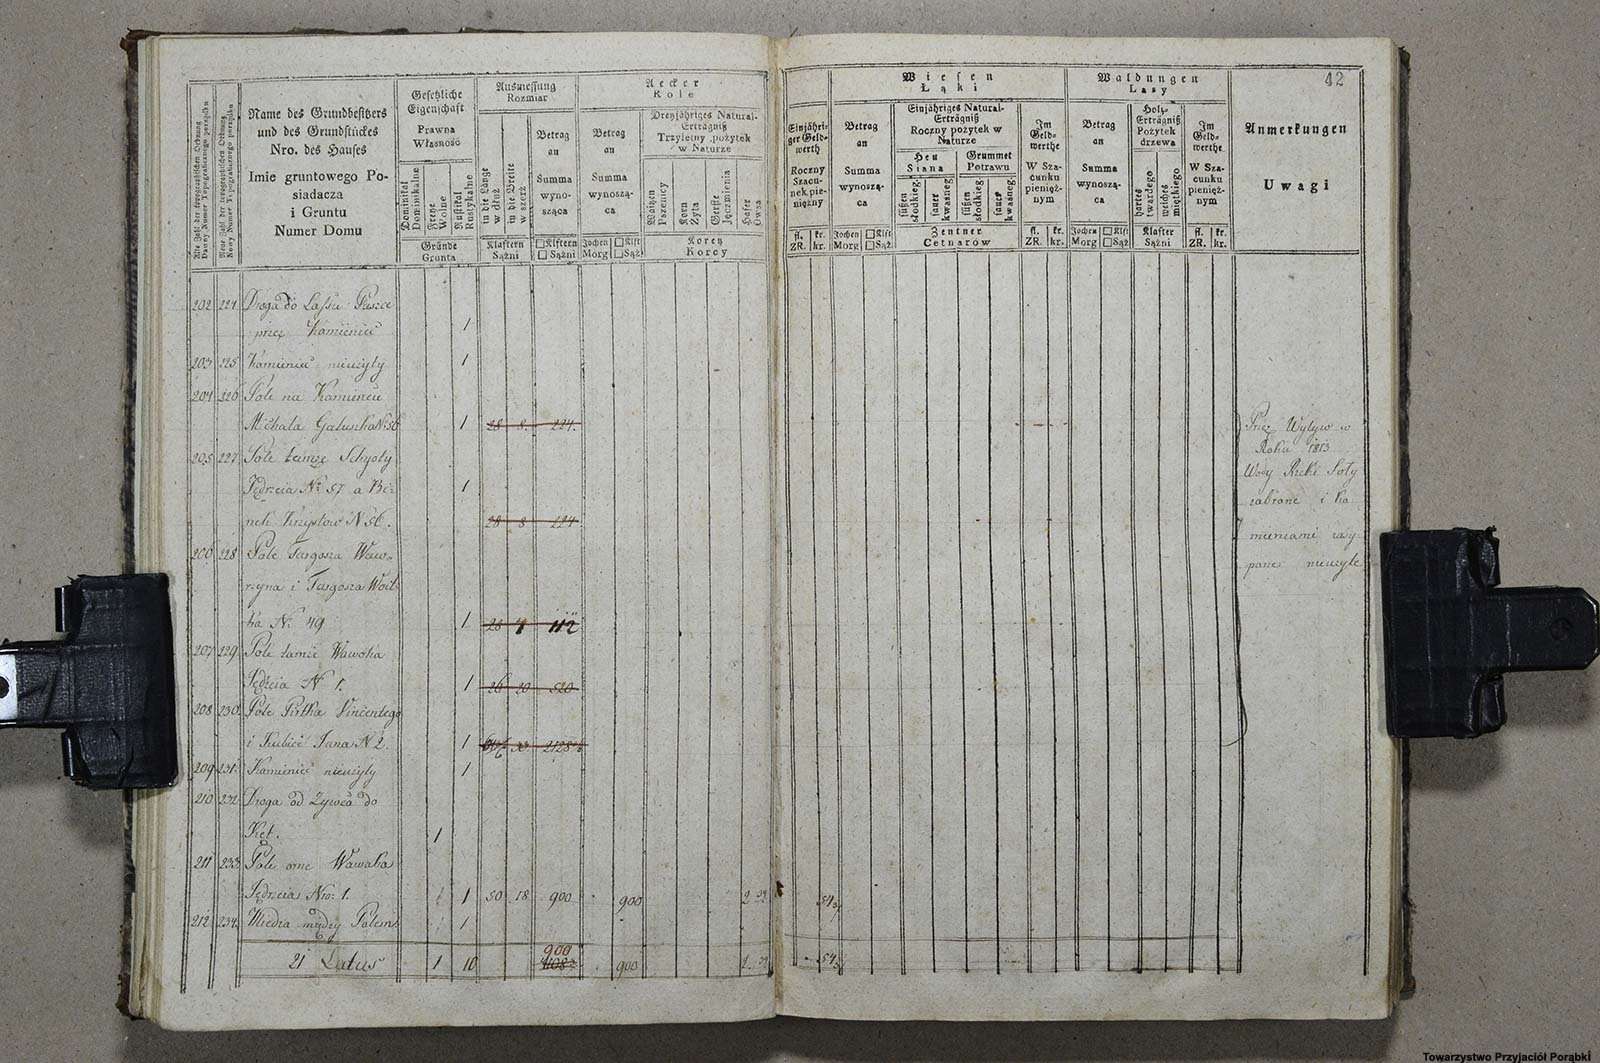 42
Alte Zahl der topographischen Ordnung
Dawny Numer Topograficznego porządku
Neue Zahl der topographischen Ordnung
Nowy Numer Topograficznego porządku
Name des Grundbesitzers
und des Grundstückes
Nro. des Hauses
Imie gruntowego Po-
siadacza
i Gruntu
Numer Domu
Gesetzliche
Eigenschaft
Prawna
Własność
Dominikal
Dominikalne
Freye
Wolne
Rustikal
Rustykalne
Gründe
Grunta
Ausmessung
Rozmiar
in die Länge
w dłuż
in die Breite
w szerż
Klaftern
Sążni
Betrag
an
Summa
wyno-
sząca
□ Klftern
□ Sążni
Aecker
Role
Betrag
an
Summa
wynoszą-
ca
Jochen □ Klft
Morg □ Sąż
Dreyjähriges Natural-
Erträgniß
Trzyletny pożytek
w Naturze
Waitzen
Pszenicy
Korn
Zyta
Gerste
Jęczmienia
Hafer
Owsa
Koretz
Korcy
Einjähri-
ger Geld-
werth
Roczny
Szacu-
nek pie-
niężny
fl. kr.
ZR. kr.
Wiesen
Łąki
Betrag
an
Summa
wynoszą-
ca
Jochen □ Klft
Morg □ Sąż
Einjähriges Natural-
Erträgniß
Roczny pożytek w
Naturze
Heu
Siana
Grummet
Potrawu
süßen
słodkieg.
sauer
kwaśneg.
süßen
słodkieg
sauer
kwaśneg.
Zentner
Cetnarów
Im
Geld-
werthe
W Sza-
cunku
pienięż-
nym
fl. kr.
ZR. kr.
Waldungen
Lasy
Betrag
an
Summa
wynoszą-
ca
Jochen □ Klft
Morg □ Sąż
Holz-
Erträgniß
Pożytek
drzewa
hartes
twardego
weiches
miętkiego
Klafter
Sążni
Im
Geld-
werthe
W Sza-
cunku
pienięż-
nym
fl. kr.
ZR. kr.
Anmerkungen
Uwagi
202 224 Droga do Lassu Puszce
przez Kamieniec 1
203 225 Kamieniec nieużyty 1
204 226 Pole na Kamieńcu
Michała Gałuszka N. 56 1 28 8. 224.
205 227 Pole tamże
Jędrzeia Nr 57 a Bi- 1
N 56. 28 8 224
206 228 Pole Targosza Waw-
rzyna i Targosza Woit-
ka N. 49 1 28 4 112
207 229 Pole tamże Wawoka
Jędrzeia N 1. 1 26 20 520
208 230. Pole Vincentego
i Kubicé Jana N 2. 1
209 231. Kamieniec nieużyty 1
210 232 Droga od Zywca do
Kęt. 1
211 233 Pole orne Wawaka
Jędrzeia Nro: 1. 1 50 18 900 900 2
212 234 Miedza między Polem 1
900
21 Latus 1 10 900
Przez Wylyw w
Roku 1813
Wody Rzeki Soły
zabrane i ka-
mieniami zasy-
pane nieużyte
Towarzystwo Przyjaciół Porąbki